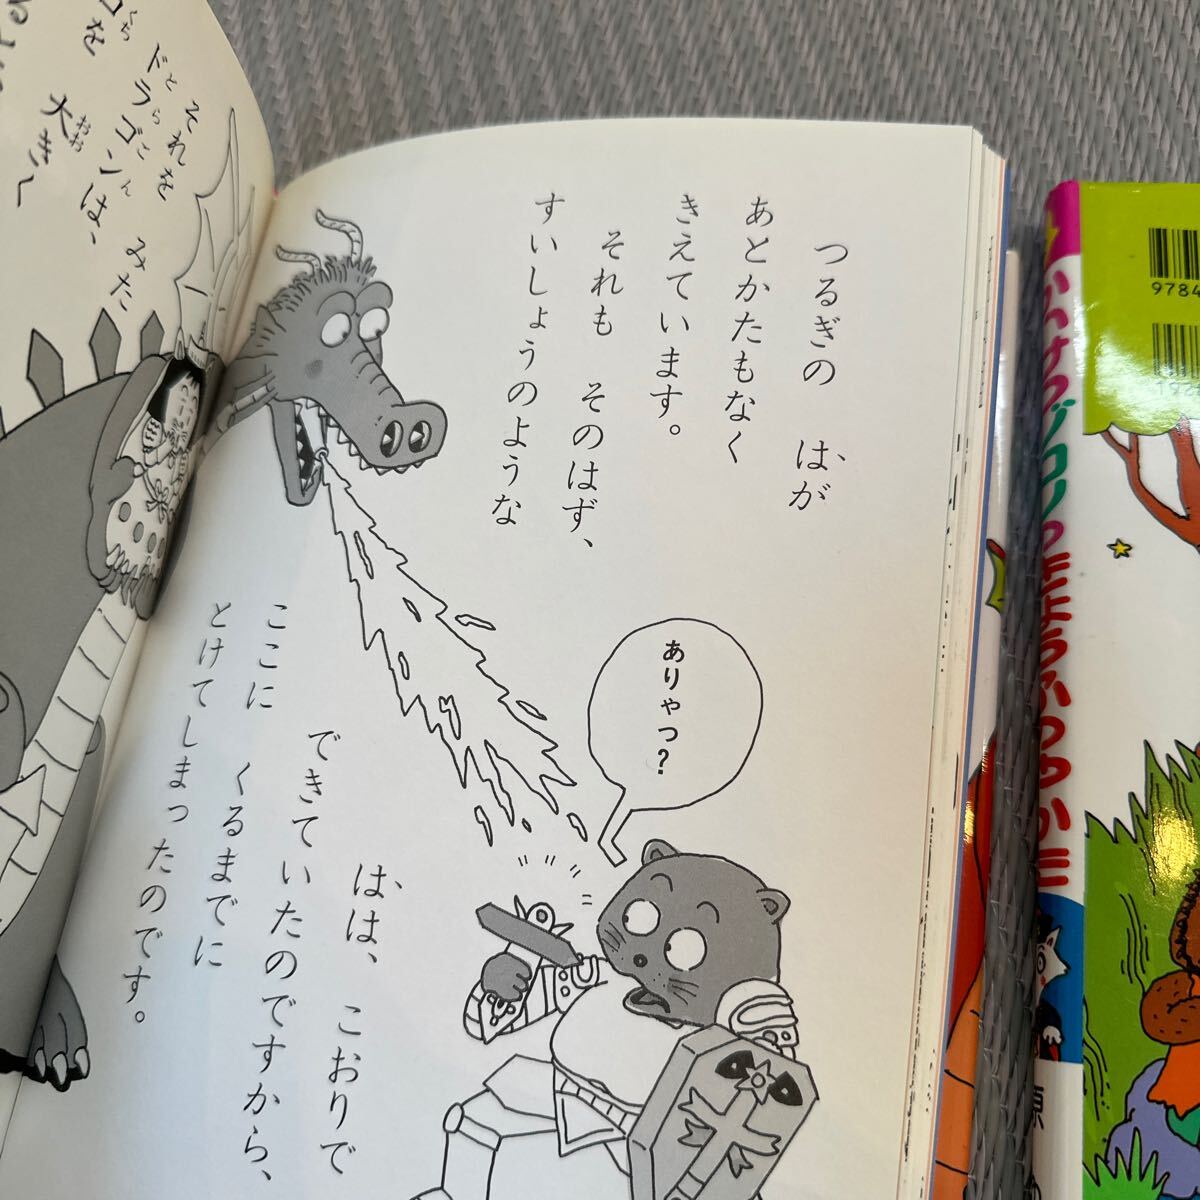 それを みた
ドラゴンは、
とらごん
大きく
おお
くち
を
つるぎの はが
あとかたもなく
きえています。
それも そのはず、
すいしょうのような
ありゃっ?
はは、 こおりで
できていたのですから、
ここに くるまでに
とけてしまったのです。
かいけつゾロリのきょうふのゆうれい
原
9784